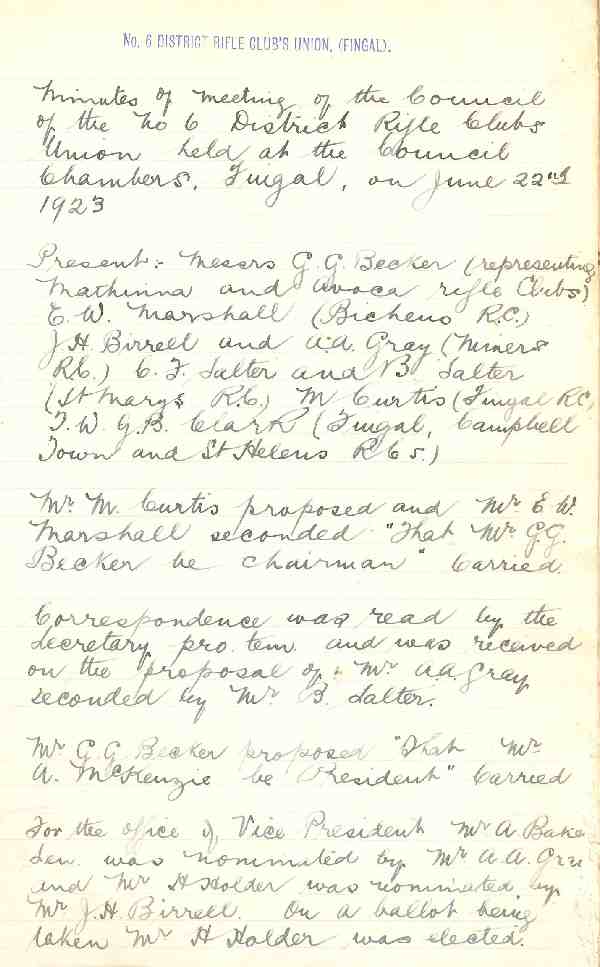 No. 6 DISTRICT RIFLE CLUB'S UNION, (FINGAL).
Minutes of meeting of the Council
of the No 6 District Rifle Clubs
Union held at the Council
Chambers, Fingal, on June 22nd
1923
Present:- Messrs G. G. Becker (representing
Mathinna and Avoca rifle Clubs)
E. W. Marshall (Bicheno R.C.)
J.H. Birrell and A.A. Gray (Miners
R.C.) C. F. Salter and B. Salter
(St Marys R.C.) M Curtis (Fingal R.C.
T. W. G.B. Clark (Fingal, Campbell
Town and St Helens R C s.)
Mr. M. Curtis proposed and Mr E W.
Marshall seconded "That Mr G.G.
Becker be chairman" Carried.
Correspondence was read by the
Secretary pro. tem. and was received
on the proposal of Mr A.A. Gray
seconded by Mr B. Salter.
Mr G. G. Becker proposed "That Mr
A. McKenzie be President" Carried
For the office of Vice President Mr A. Bake
Sen. was nominated by Mr A. A. Gra
and Mr H Holder was nominated by
Mr J.H. Birrell. On a ballot being
taken Mr H Holder was elected.